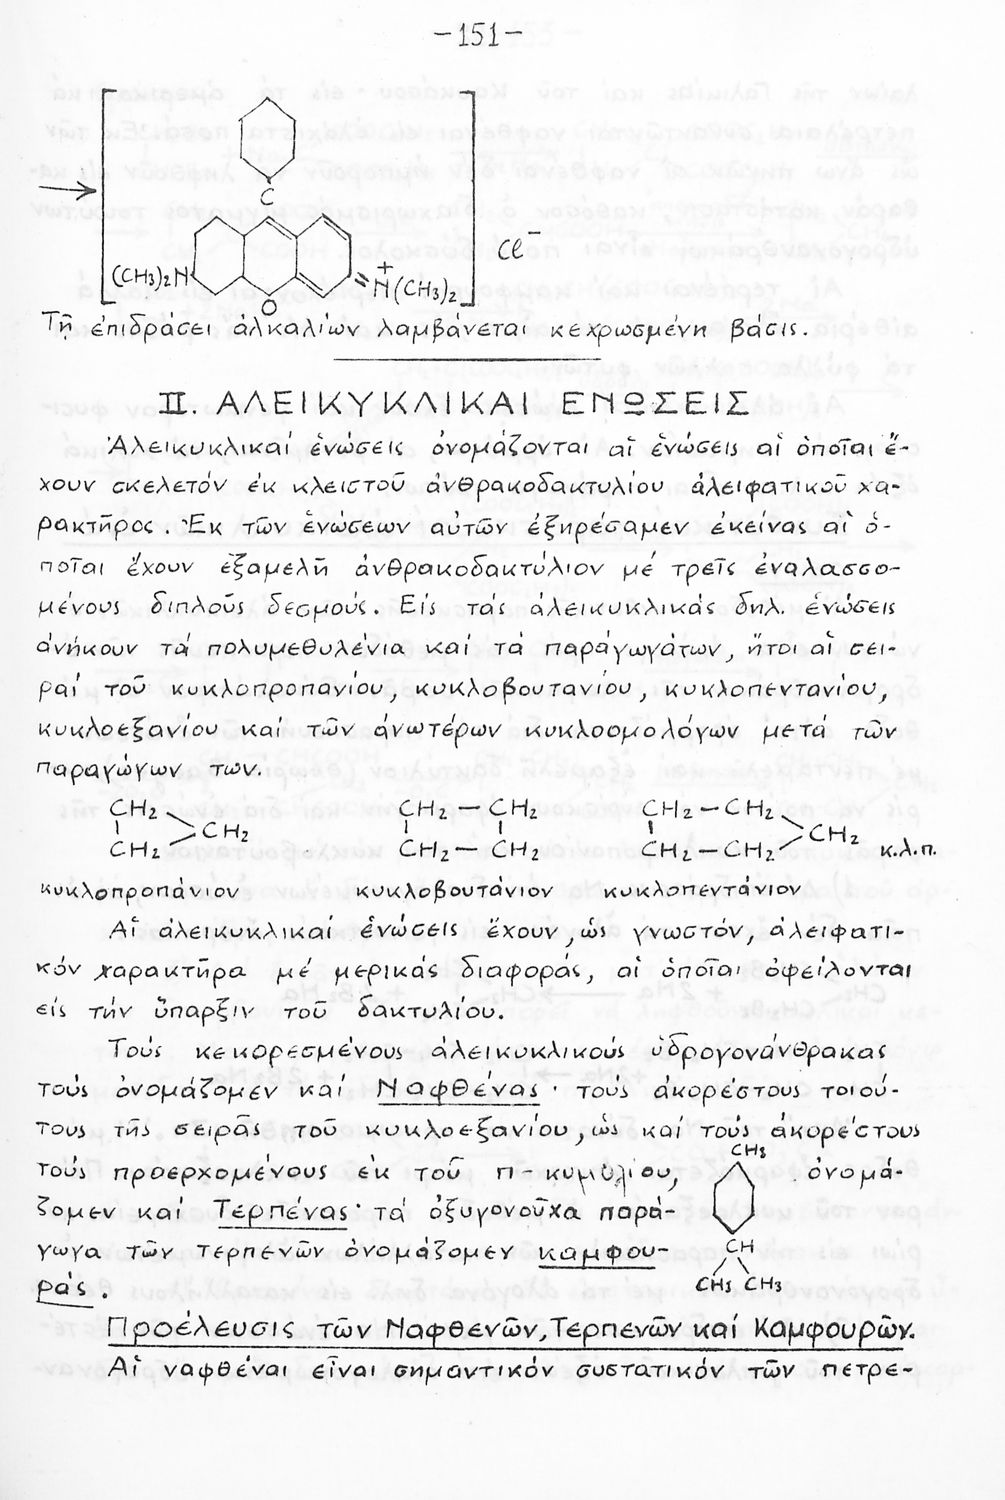 -151-
C
(CH3)2N
O
+
=N(CH3)2
Cl-
Τῇ ἐπιδράσει ἀλκαλίων λαμβάνεται κεχρωσμένη βάσις.
II. ΑΛΕΙΚΥΚΛΙΚΑΙ ΕΝΩΣΕΙΣ
Ἀλεικυκλικαί ἑνώσεις ὀνομάζονται αἱ ἑνώσεις αἱ ὁποῖαι ἔ-
χουν σκελετόν ἐκ κλειστοῦ ἀνθρακοδακτυλίου ἀλειφατικοῦ χα-
ρακτῆρος. Ἐκ τῶν ἑνώσεων αὐτῶν ἐξηρέσαμεν ἐκείνας αἱ ὁ-
ποῖαι ἔχουν ἑξαμελῆ ἀνθρακοδακτύλιον μέ τρεῖς ἐναλασσο-
μένους διπλοῦς δεσμούς. Εἰς τάς ἀλεικυκλικάς δηλ. ἑνώσεις
ἀνήκουν τά πολυμεθυλένια καί τά παράγωγάτων, ἤτοι αἱ σει-
ραί τοῦ κυκλοπροπανίου, κυκλοβουτανίου, κυκλοπεντανίου,
κυκλοεξανίου καί τῶν ἀνωτέρων κυκλοομολόγων μετά τῶν
παραγώγων των.
CH2 CH2 — CH2 CH2 — CH2
| > CH2 | | | > CH2
CH2 CH2 — CH2 CH2 — CH2 κ.λ.π.
κυκλοπροπάνιον κυκλοβουτάνιον κυκλοπεντάνιον
Αἱ ἀλεικυκλικαί ἑνώσεις ἔχουν, ὡς γνωστόν, ἀλειφατι-
κόν χαρακτῆρα μέ μερικάς διαφοράς, αἱ ὁποῖαι ὀφείλονται
εἰς τήν ὕπαρξιν τοῦ δακτυλίου.
Τούς κεκορεσμένους ἀλεικυκλικούς ὑδρογονάνθρακας
τούς ὀνομάζομεν καί Ναφθένας· τούς ἀκορέστους τοιού-
τους τῆς σειρᾶς τοῦ κυκλοεξανίου, ὡς καί τούς ἀκορέστους
CH3
τούς προερχομένους ἐκ τοῦ π-κυμυλίου, ὀνομά-
ζομεν καί Τερπένας· τά ὀξυγονοῦχα παρά-
γωγα τῶν τερπενῶν ὀνομάζομεν καμφου-
CH
ράς.
CH3 CH3
Προέλευσις τῶν Ναφθενῶν, Τερπενῶν καί Καμφουρῶν.
Αἱ ναφθέναι εἶναι σημαντικόν συστατικόν τῶν πετρε-